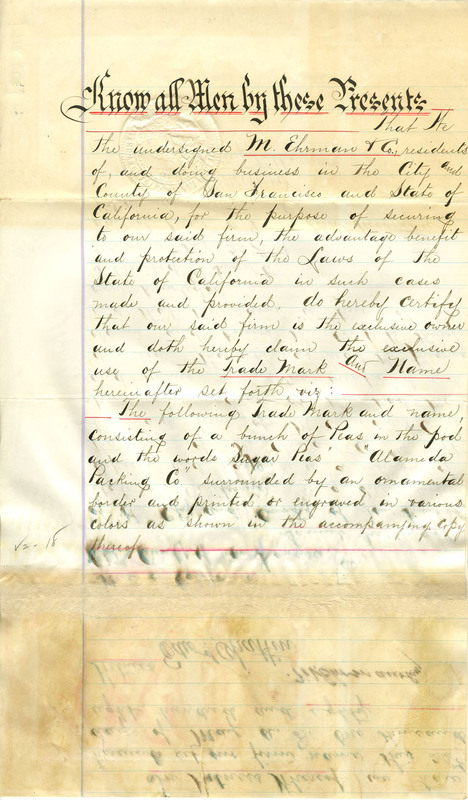 Know all Men by these Presents
That We
the undersigned M. Ehrman & Co., residents
of, and doing business in the City and
County of San Francisco and State of
California, for the purpose of securing
to our said firm, the advantage benefit
and protection of the Laws of the
State of California in such cases
made and provided, do hereby certify
that our said firm is the exclusive owner
and doth hereby claim the exclusive
use of the Trade Mark and Name
hereinafter set forth, viz:
The following Trade Mark and name,
consisting of a bunch of Peas in the pod
and the words "Sugar Peas" "Alameda
Packing Co" surrounded by an ornamental
border and printed or engraved in various
colors as shown in the accompanying copy
thereof